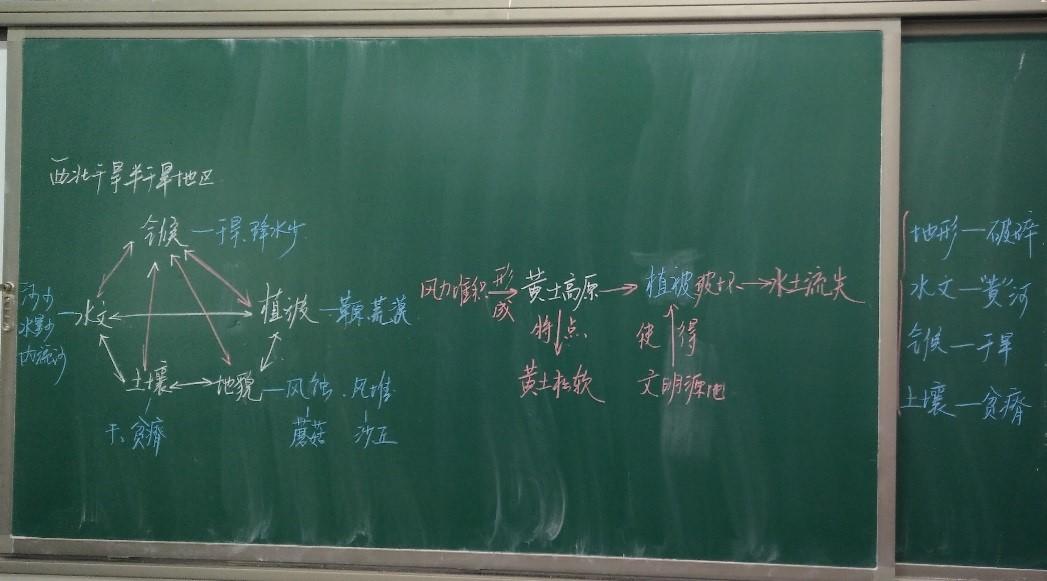 西北干旱半干旱地区
气候—干旱、降水少
水文
植被—草原、荒漠
水量少
土壤
地貌—风蚀、风堆
干、贫瘠
蘑菇
沙丘
风力堆积
形成
黄土高原
植被破坏
水土流失
特点
黄土松软
使得
文明源地
地形—破碎
水文—"黄"河
气候—干旱
土壤—贫瘠